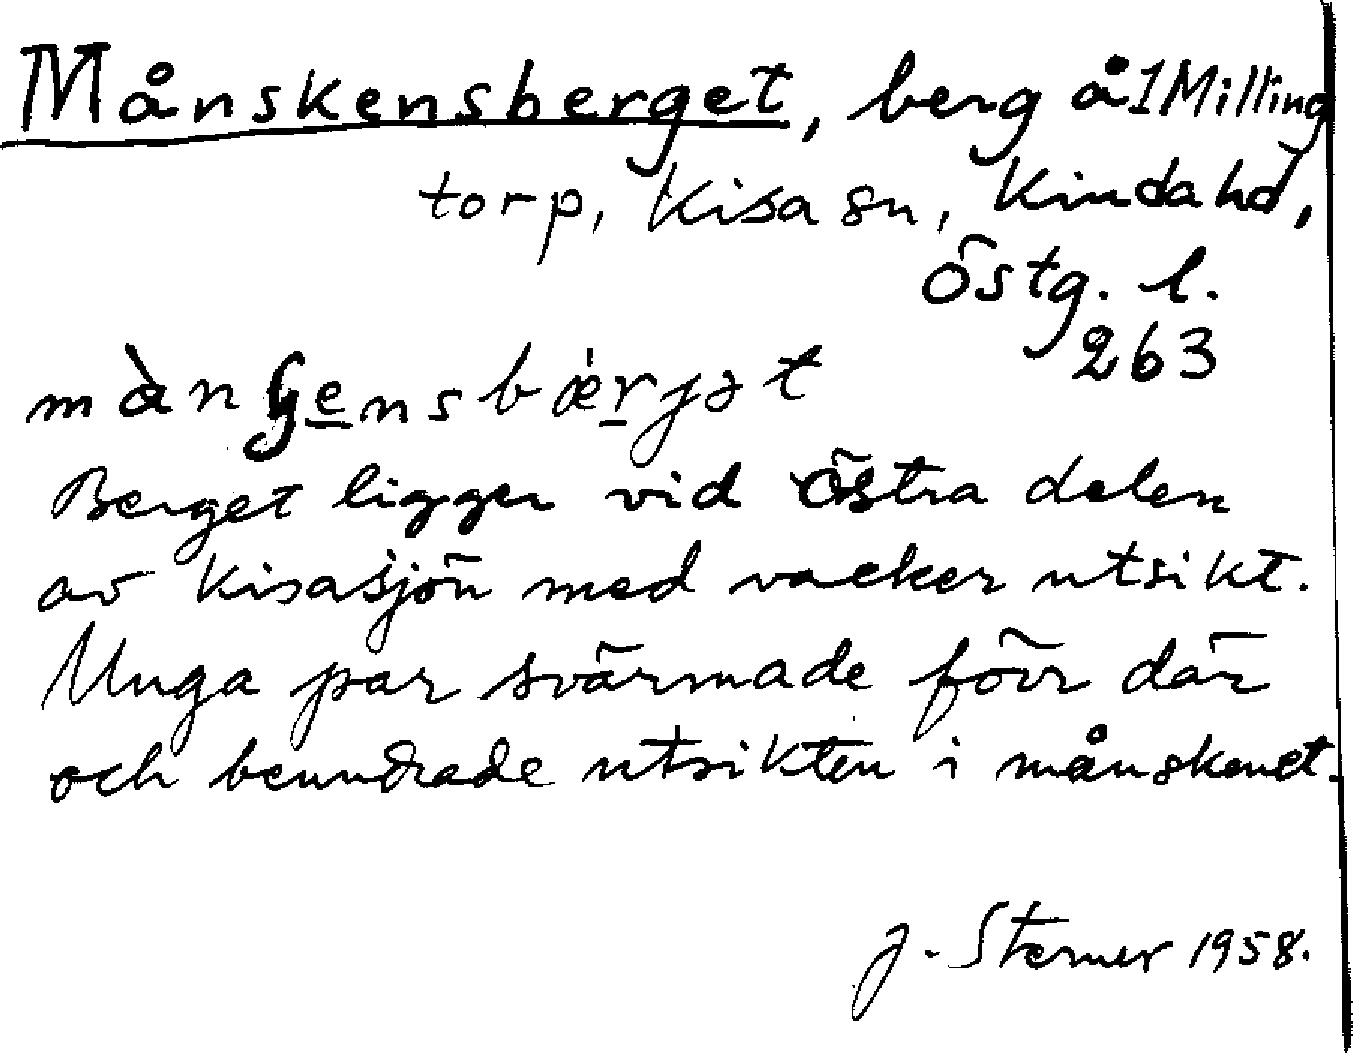 Månskensberget, berg å 1 Milling
torp, Kisa sn, Kinda hd,
Östg. l.
263
Berget ligger vid östra delen
av Kisasjön med vacker utsikt.
Unga par svärmade förr där
och beundrade utsikten i månskenet.
J. Sterner 1958.